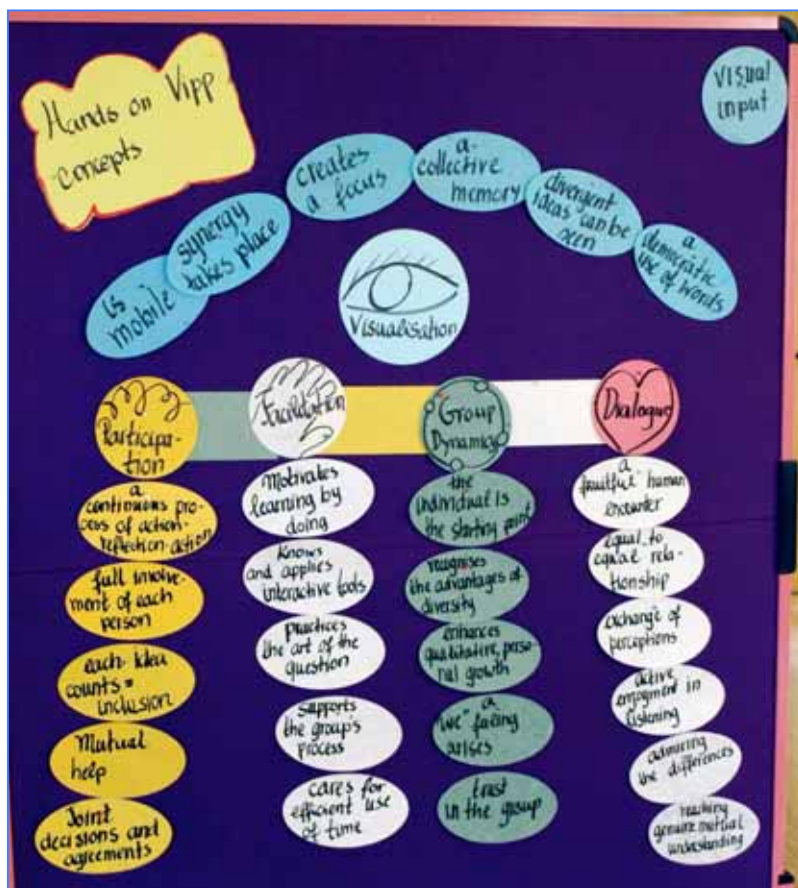 Hands on Vipp
concepts
VISUAL
input
is
mobile
synergy
takes place
creates
a focus
a
collective
memory
divergent
ideas can be
seen
a
democratic
use of words
Visualisation
Participa-
tion
a
continuous pro-
cess of action-
reflection-action
full involve-
ment of each
person
each idea
counts =
inclusion
Mutual
help
Joint
decisions and
agreements
Facilitation
Motivates
learning by
doing
Knows
and applies
interactive tools
practices
the art of the
question
supports
the group's
process
cares for
efficient use
of time
Group
Dynamic
the
individual is
the starting point
recognises
the advantages of
diversity
enhances
qualitative, perso-
nal growth
a
"we" feeling
arises
trust
in the group
Dialogue
a
fruitful human
encounter
equal to
equal rela-
tionship
exchange of
perceptions
active
enjoyment in
listening
admiring
the differences
reaching
genuine mutual
understanding